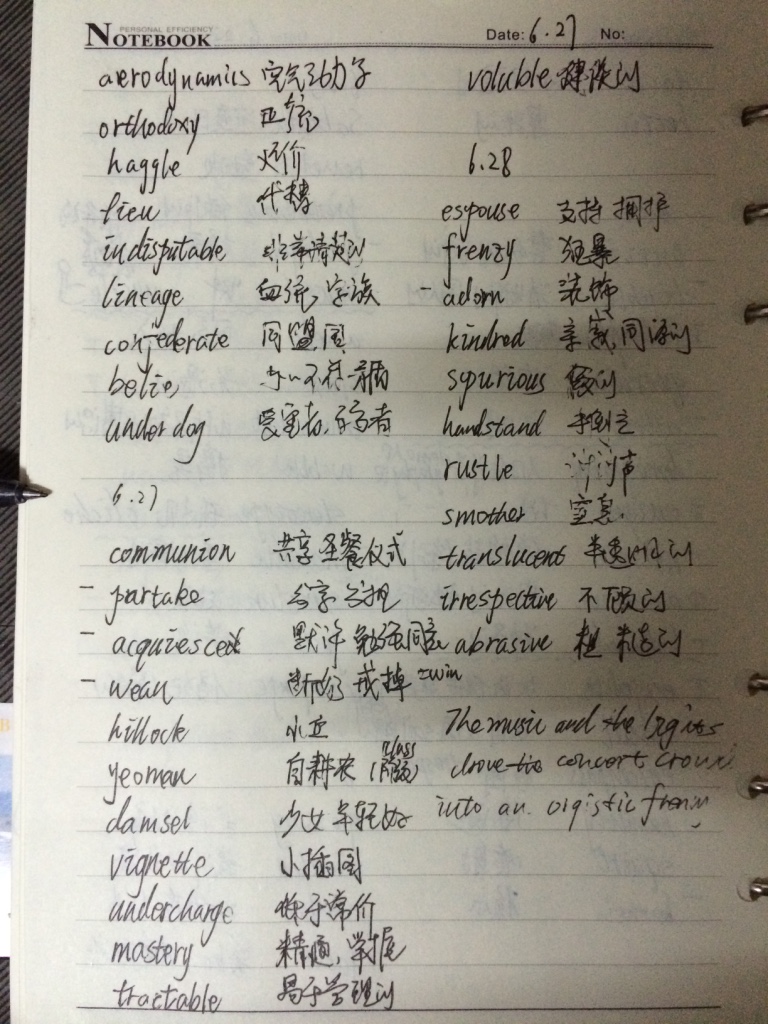 PERSONAL EFFICIENCY
NOTEBOOK Date: 6.27 No:
aerodynamics 空气动力学
orthodoxy 正统
haggle 火价
lieu 代替
indisputable
lineage 血统, 字族
confederate 同盟国
belie 与…不符
underdog 受害者,
6.27
communion 共享 圣餐仪式
- partake 分享 分担
- acquiesce 默许 勉强同意
- wean 断奶 戒掉
hillock 小丘
yeoman 自耕农 (class 阶级)
damsel 少女 年轻女
vignette 小插图
undercharge 低于常价
mastery 精通, 掌握
tractable 易于管理的
voluble
6.28
espouse 支持 拥护
frenzy 狂暴
- adorn 装饰
kindred 亲戚 同源的
spurious 假的
handstand 手倒立
rustle 沙沙声
smother 窒息
translucent 半透明的
irrespective 不顾的
abrasive 粗糙的
The music and the lights
drove the concert crowd
into an orgistic frenzy